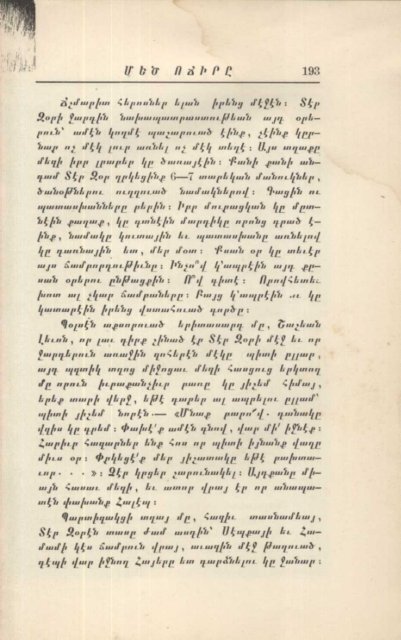 ՄԵԾ ՈՃԻՐԸ 193
Ճշմարիտ հերոսներ ելան իրենց մէջէն։ Տէր
Զօրի ջարդին նախապատրաստութեան այդ օրե-
րուն՝ ամէն կողմէ պաշարուած էինք, չէինք կըր-
նար ոչ մէկ լուր առնել ոչ մէկ տեղէ։ Այս տղաքը
մեզի իբր լրաբեր կը ծառայէին։ Քանի քանի ան-
գամ Տէր Զօր ղրկեցինք 6—7 տարեկան մանուկներ,
ծանօթներու ուղղուած նամակներով։ Գացին ու
պատասխանները բերին։ Իբր մուրացկան կը մըտ-
նէին քաղաք, կը գտնէին մարդիկը որոնց գրած է-
ինք, նամակը կուտային եւ պատասխանը առնելով
կը դառնային ետ, մեր մօտ։ Քսան օր կը տեւէր
այս ճամբորդութիւնը։ Ինչո՞վ կ՚ապրէին այդ քը-
սան օրերու ընթացքին։ Ո՞վ գիտէ։ Որովհետեւ
խոտ ալ չկար ճամբաները։ Բայց կ՚ապրէին ու կը
կատարէին իրենց վստահուած գործը։
Պօլսէն աքսորուած երիտասարդ մը, Շաշեան
Լեւոն, որ լաւ դիրք շինած էր Տէր Զօրի մէջ եւ որ
ջարդերուն առաջին զոհերէն մէկը պիտի ըլլար,
այդ պզտիկ տղոց միջոցաւ մեզի հասցուց երկտող
մը որուն իւրաքանչիւր բառը կը յիշեմ հիմայ,
երեք տարի վերջ, եթէ դարեր ալ ապրելու ըլլամ՝
պիտի յիշեմ նորէն.— «Մնաք բարո՜վ. դանակը
վզիս կը դրեմ։ Փախէ՛ք ամէն գնով, վար մի՛ իջնէք։
Հարիւր հազարներ ենք հոս որ պիտի իյնանք վաղը
միւս օր։ Փրկեցէ՛ք մեր յիշատակը եթէ բախտա-
ւոր. . . »։ Չէր կրցեր շարունակել։ Այդքանը մի-
այն հասաւ մեզի, եւ ատոր վրայ էր որ անապա-
տէն փախանք Հալէպ։
Պարտիզակցի տղայ մը, հազիւ տասնամեայ,
Տէր Զօրէն տասը ժամ առդին՝ Սէպքայի եւ Համ-
մամի կէս ճամբուն վրայ, աւազին մէջ թաղուած,
դէպի վար իջնող Հայերը ետ դարձնելու կը ջանար։